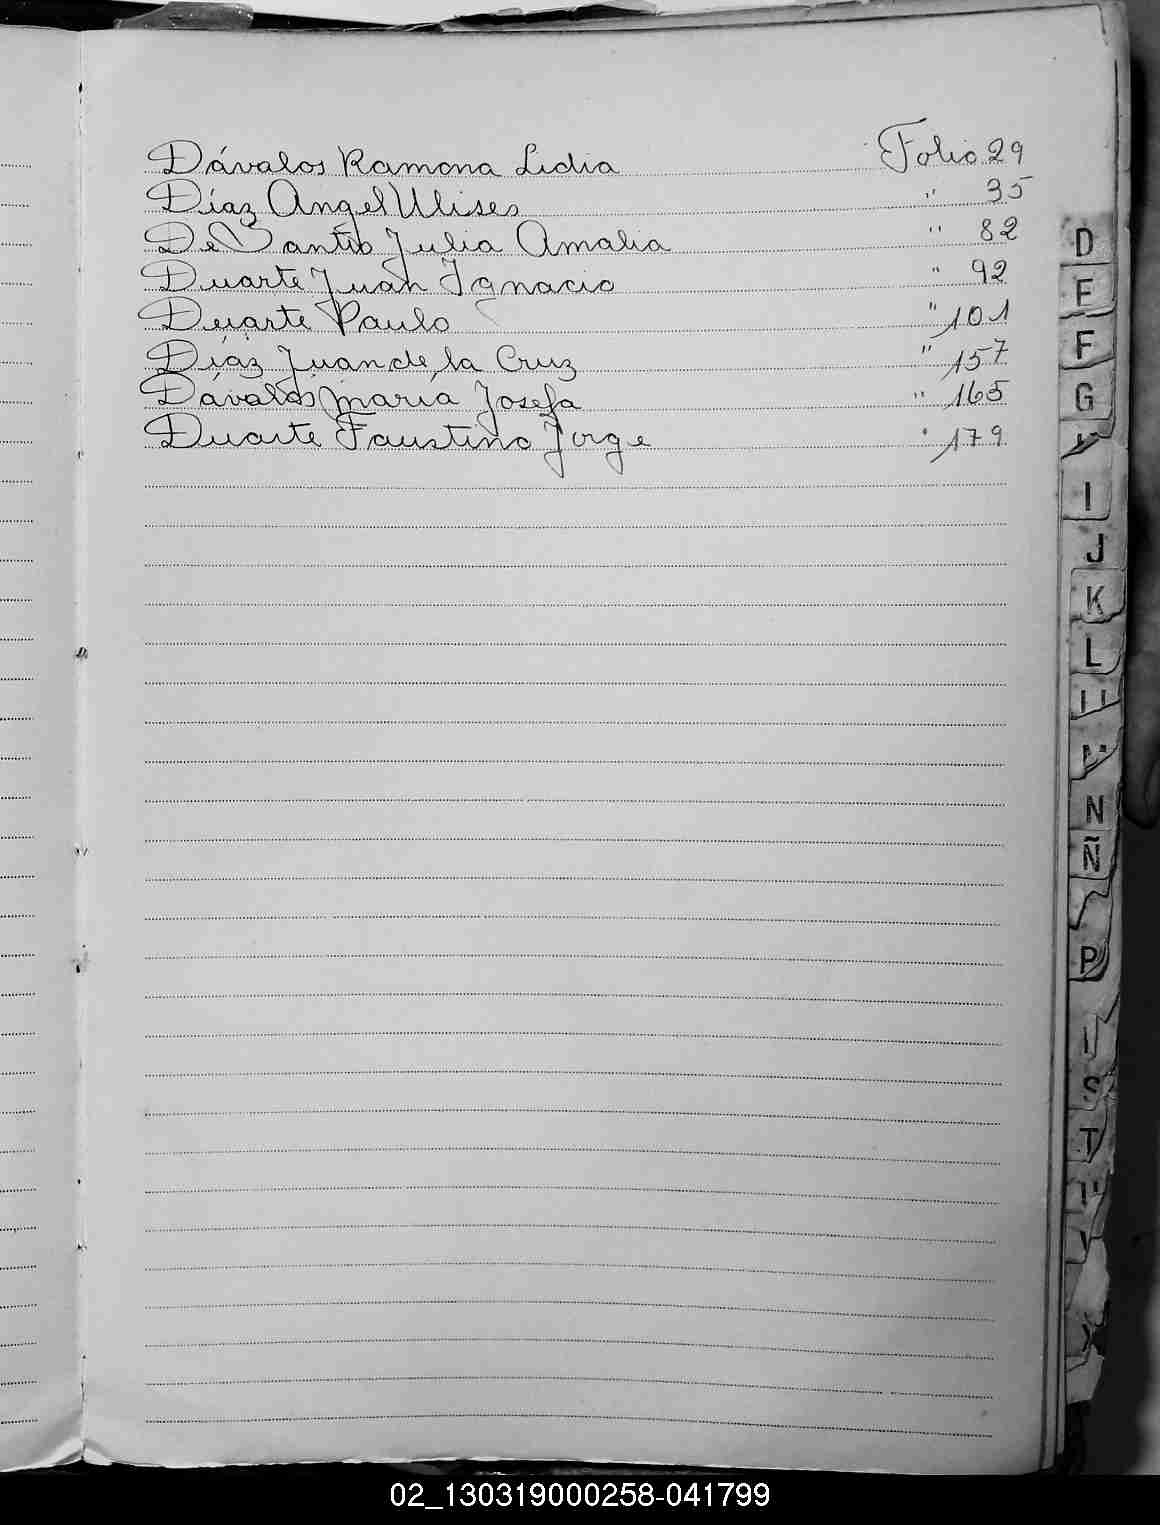 Dávalos Ramona Lidia Folio 29
Díaz Angel Ulises " 35
De Santis Julia Amalia " 82
Duarte Juan Ignacio " 92
Duarte Paulo " 101
Díaz Juan de la Cruz " 157
Dávalos María Josefa " 165
Duarte Faustino Jorge " 179
D
E
F
G
I
J
K
L
N
Ñ
P
S
T
02_130319000258-041799